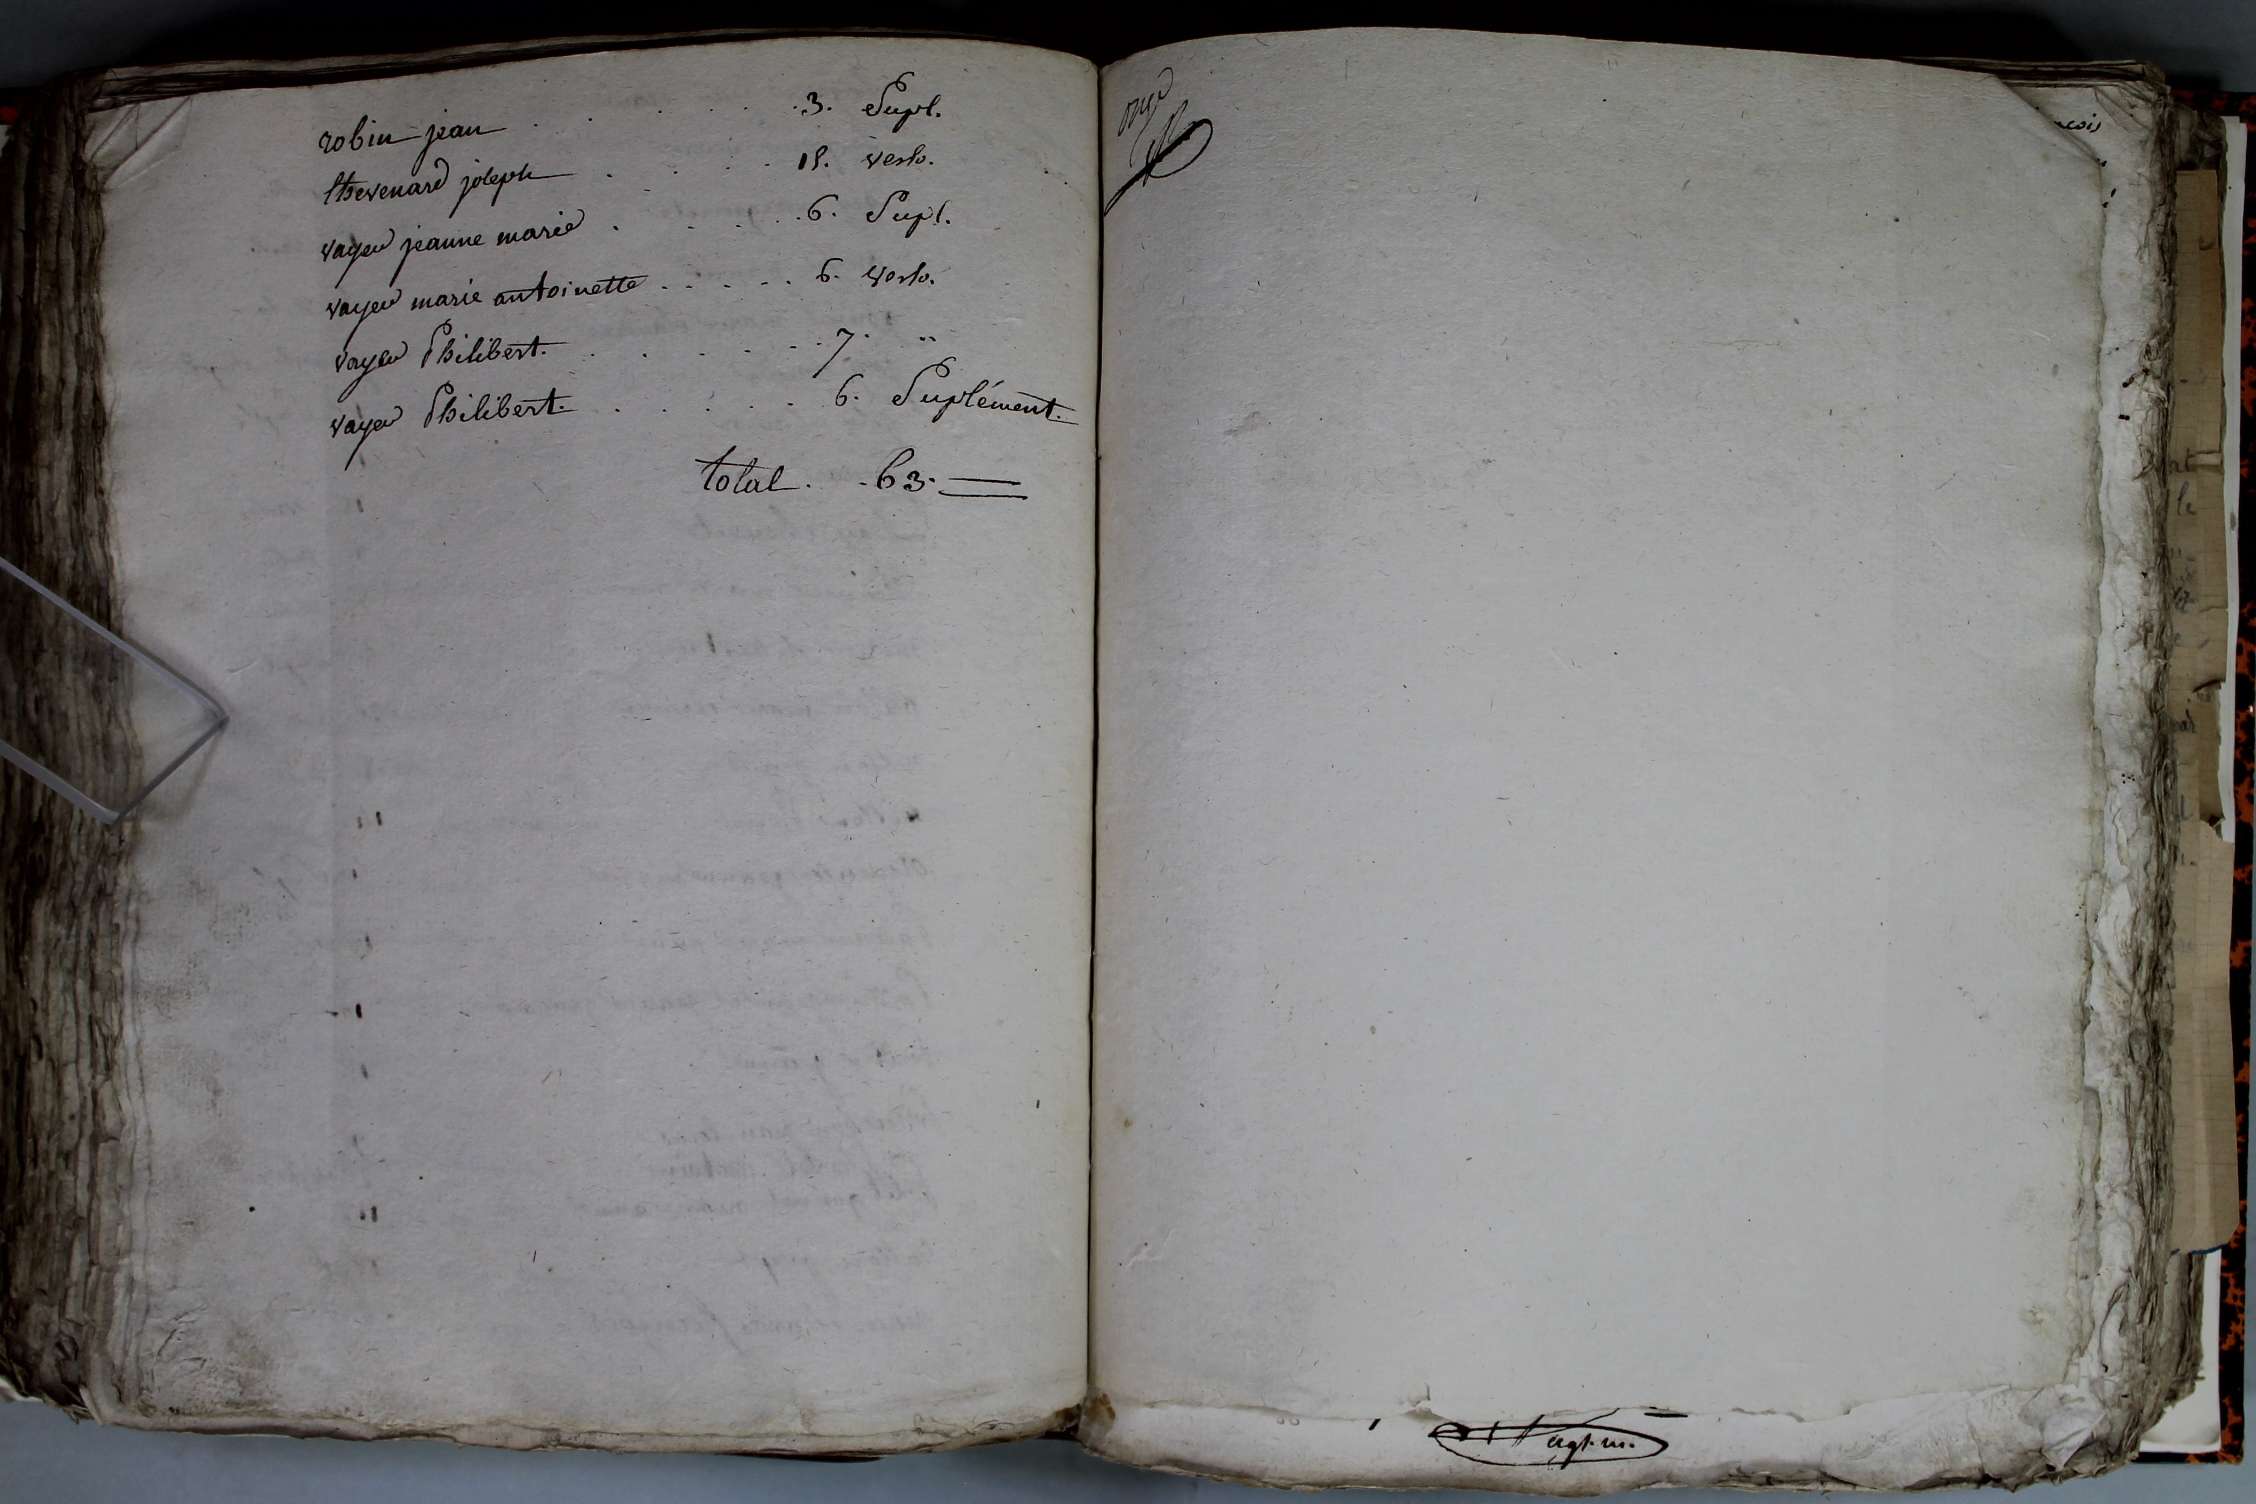 robin jean . . . . . . 3. Supl.
thevenard joseph . . . . 15. verso.
vayer jeanne marie . . . . 6. Supl.
vayer marie antoinette . . . . . 6. verso.
vayer Philibert. . . . . . . 7. "
vayer Philibert. . . . . . 6. Suplément.
total. . 63.
onze
agt. m.